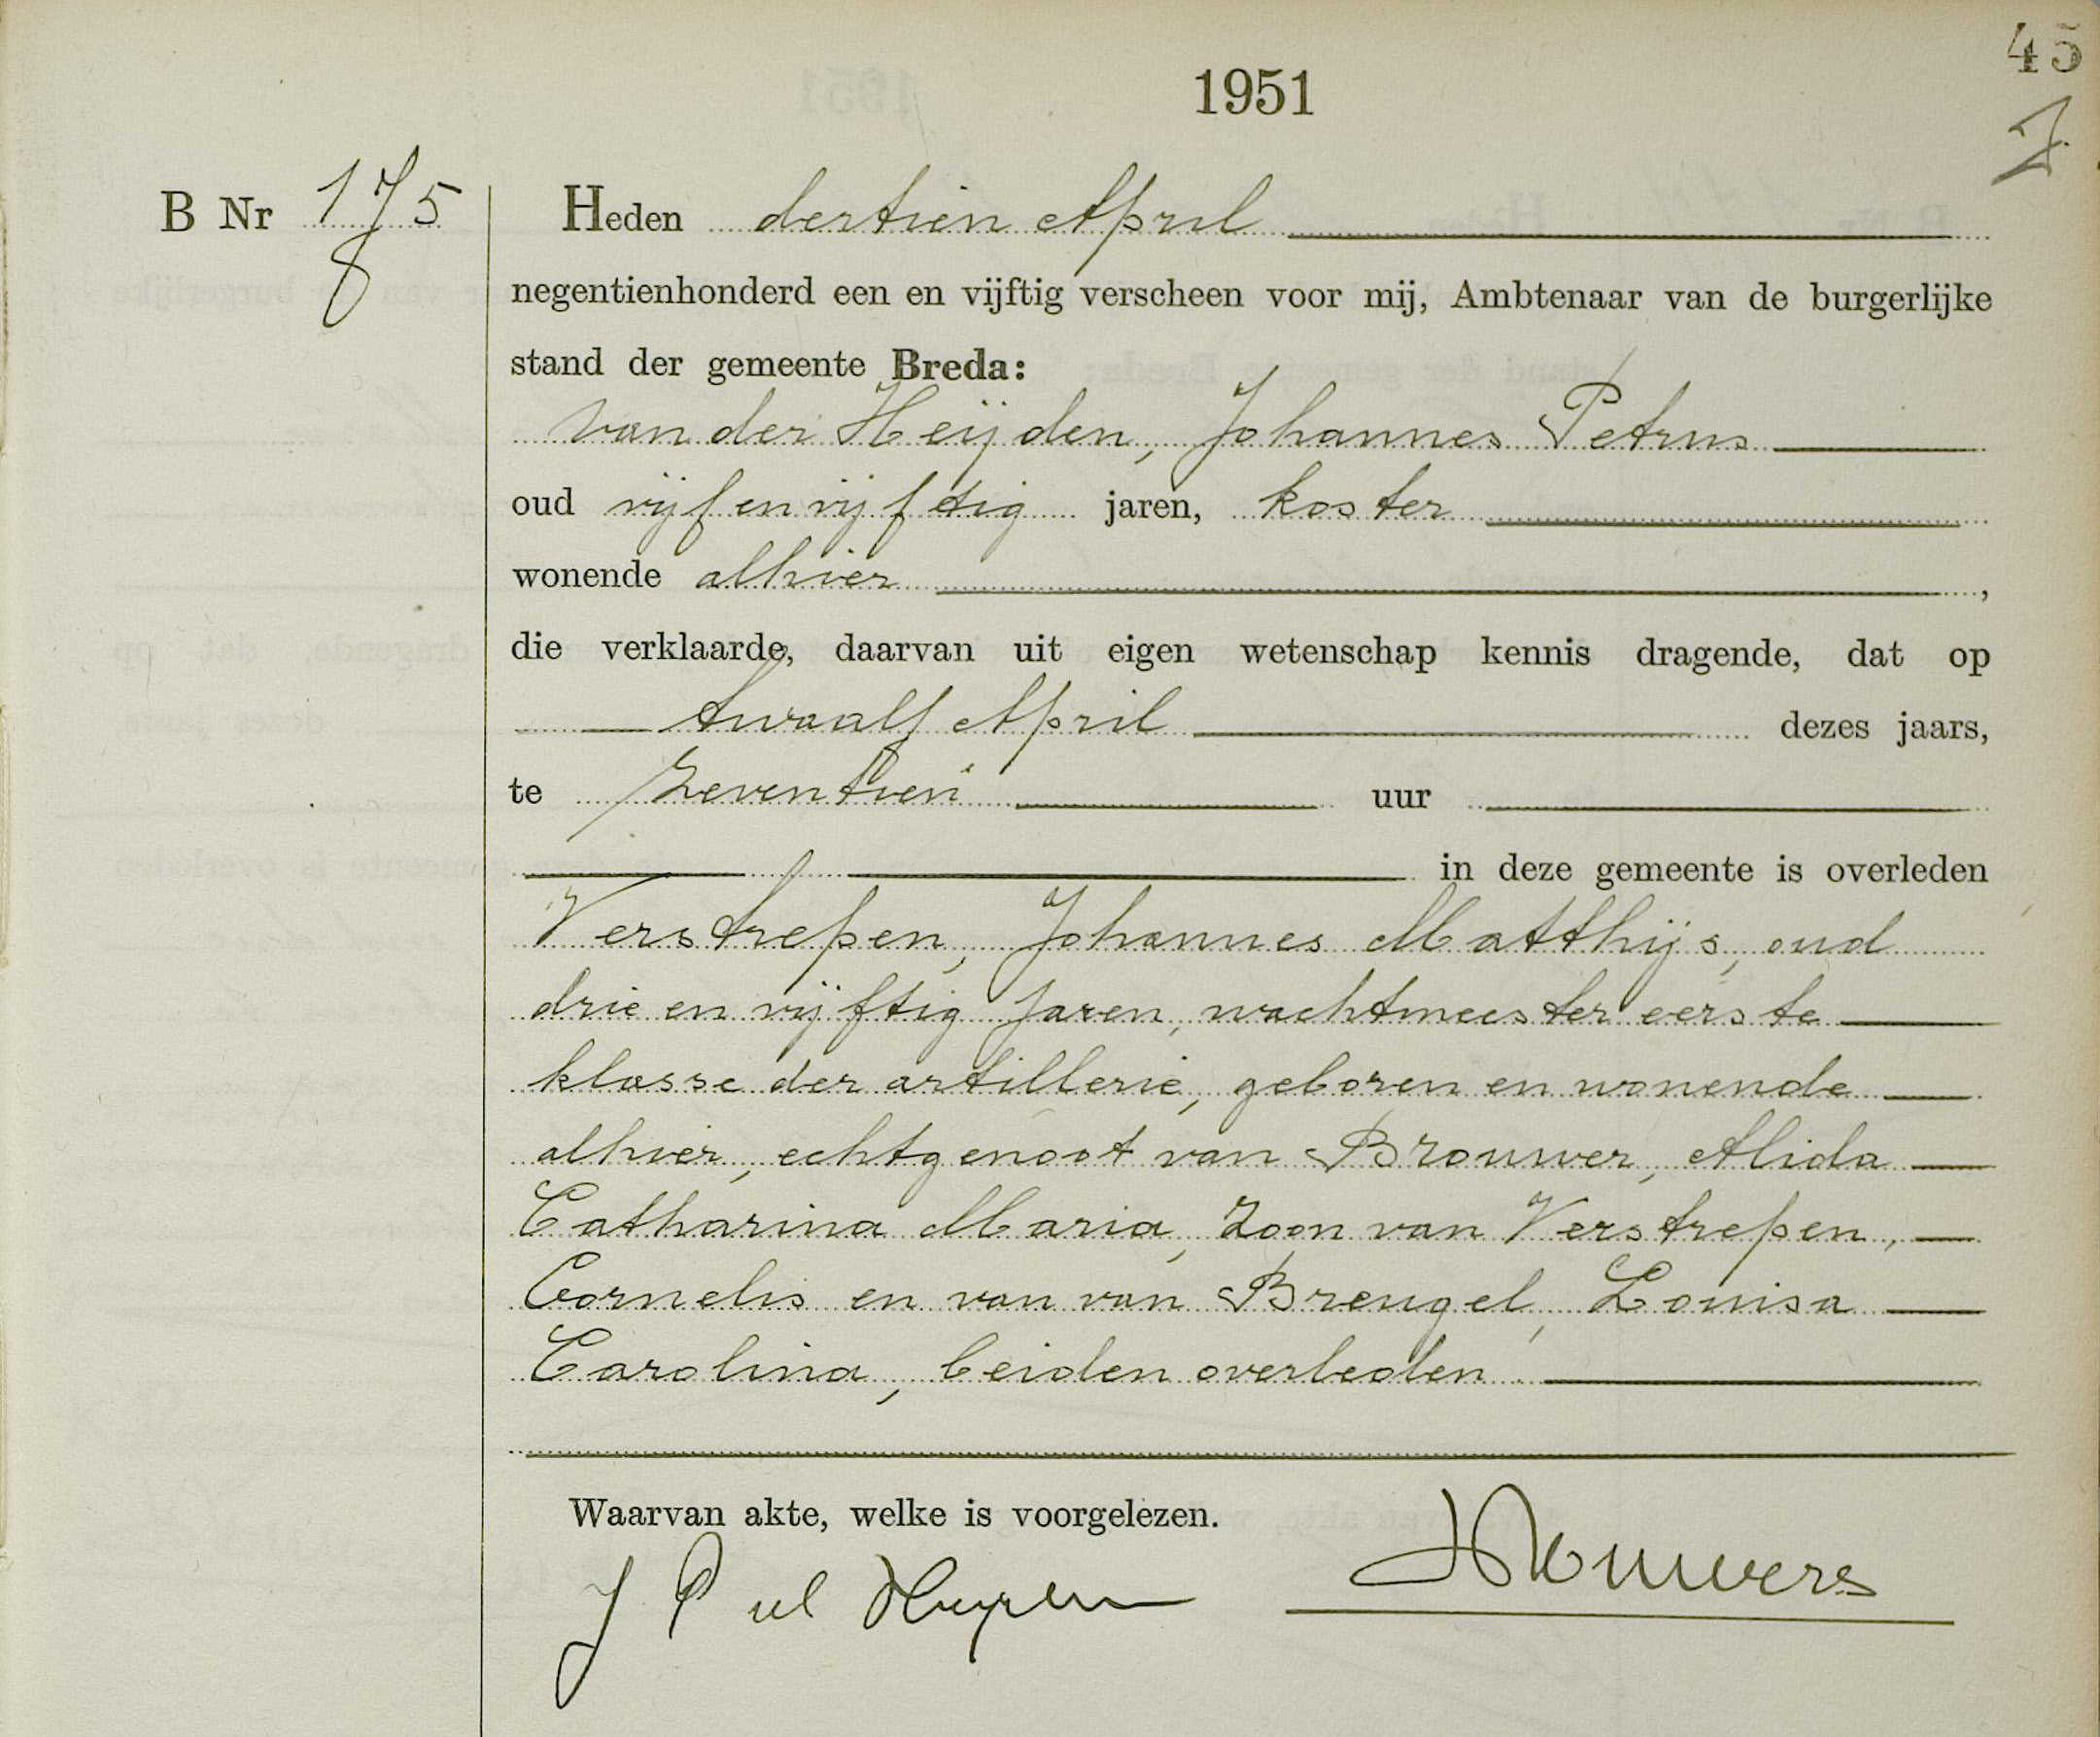 45
1951
B Nr 175
Heden dertien April
negentienhonderd een en vijftig verscheen voor mij, Ambtenaar van de burgerlijke
stand der gemeente Breda:
van der Heijden, Johannes Petrus
oud vijf en vijftig jaren, koster
wonende alhier ,
die verklaarde, daarvan uit eigen wetenschap kennis dragende, dat op
twaalf April dezes jaars,
te zeventien uur
in deze gemeente is overleden
Verstrepen, Johannes Matthijs, oud
drie en vijftig jaren, wachtmeester eerste
klasse der artillerie, geboren en wonende
alhier, echtgenoot van Brouwer, Alida
Catharina Maria, zoon van Verstrepen,
Cornelis en van van Breugel, Louisa
Carolina, beiden overleden
Waarvan akte, welke is voorgelezen.
J P vd Heyden